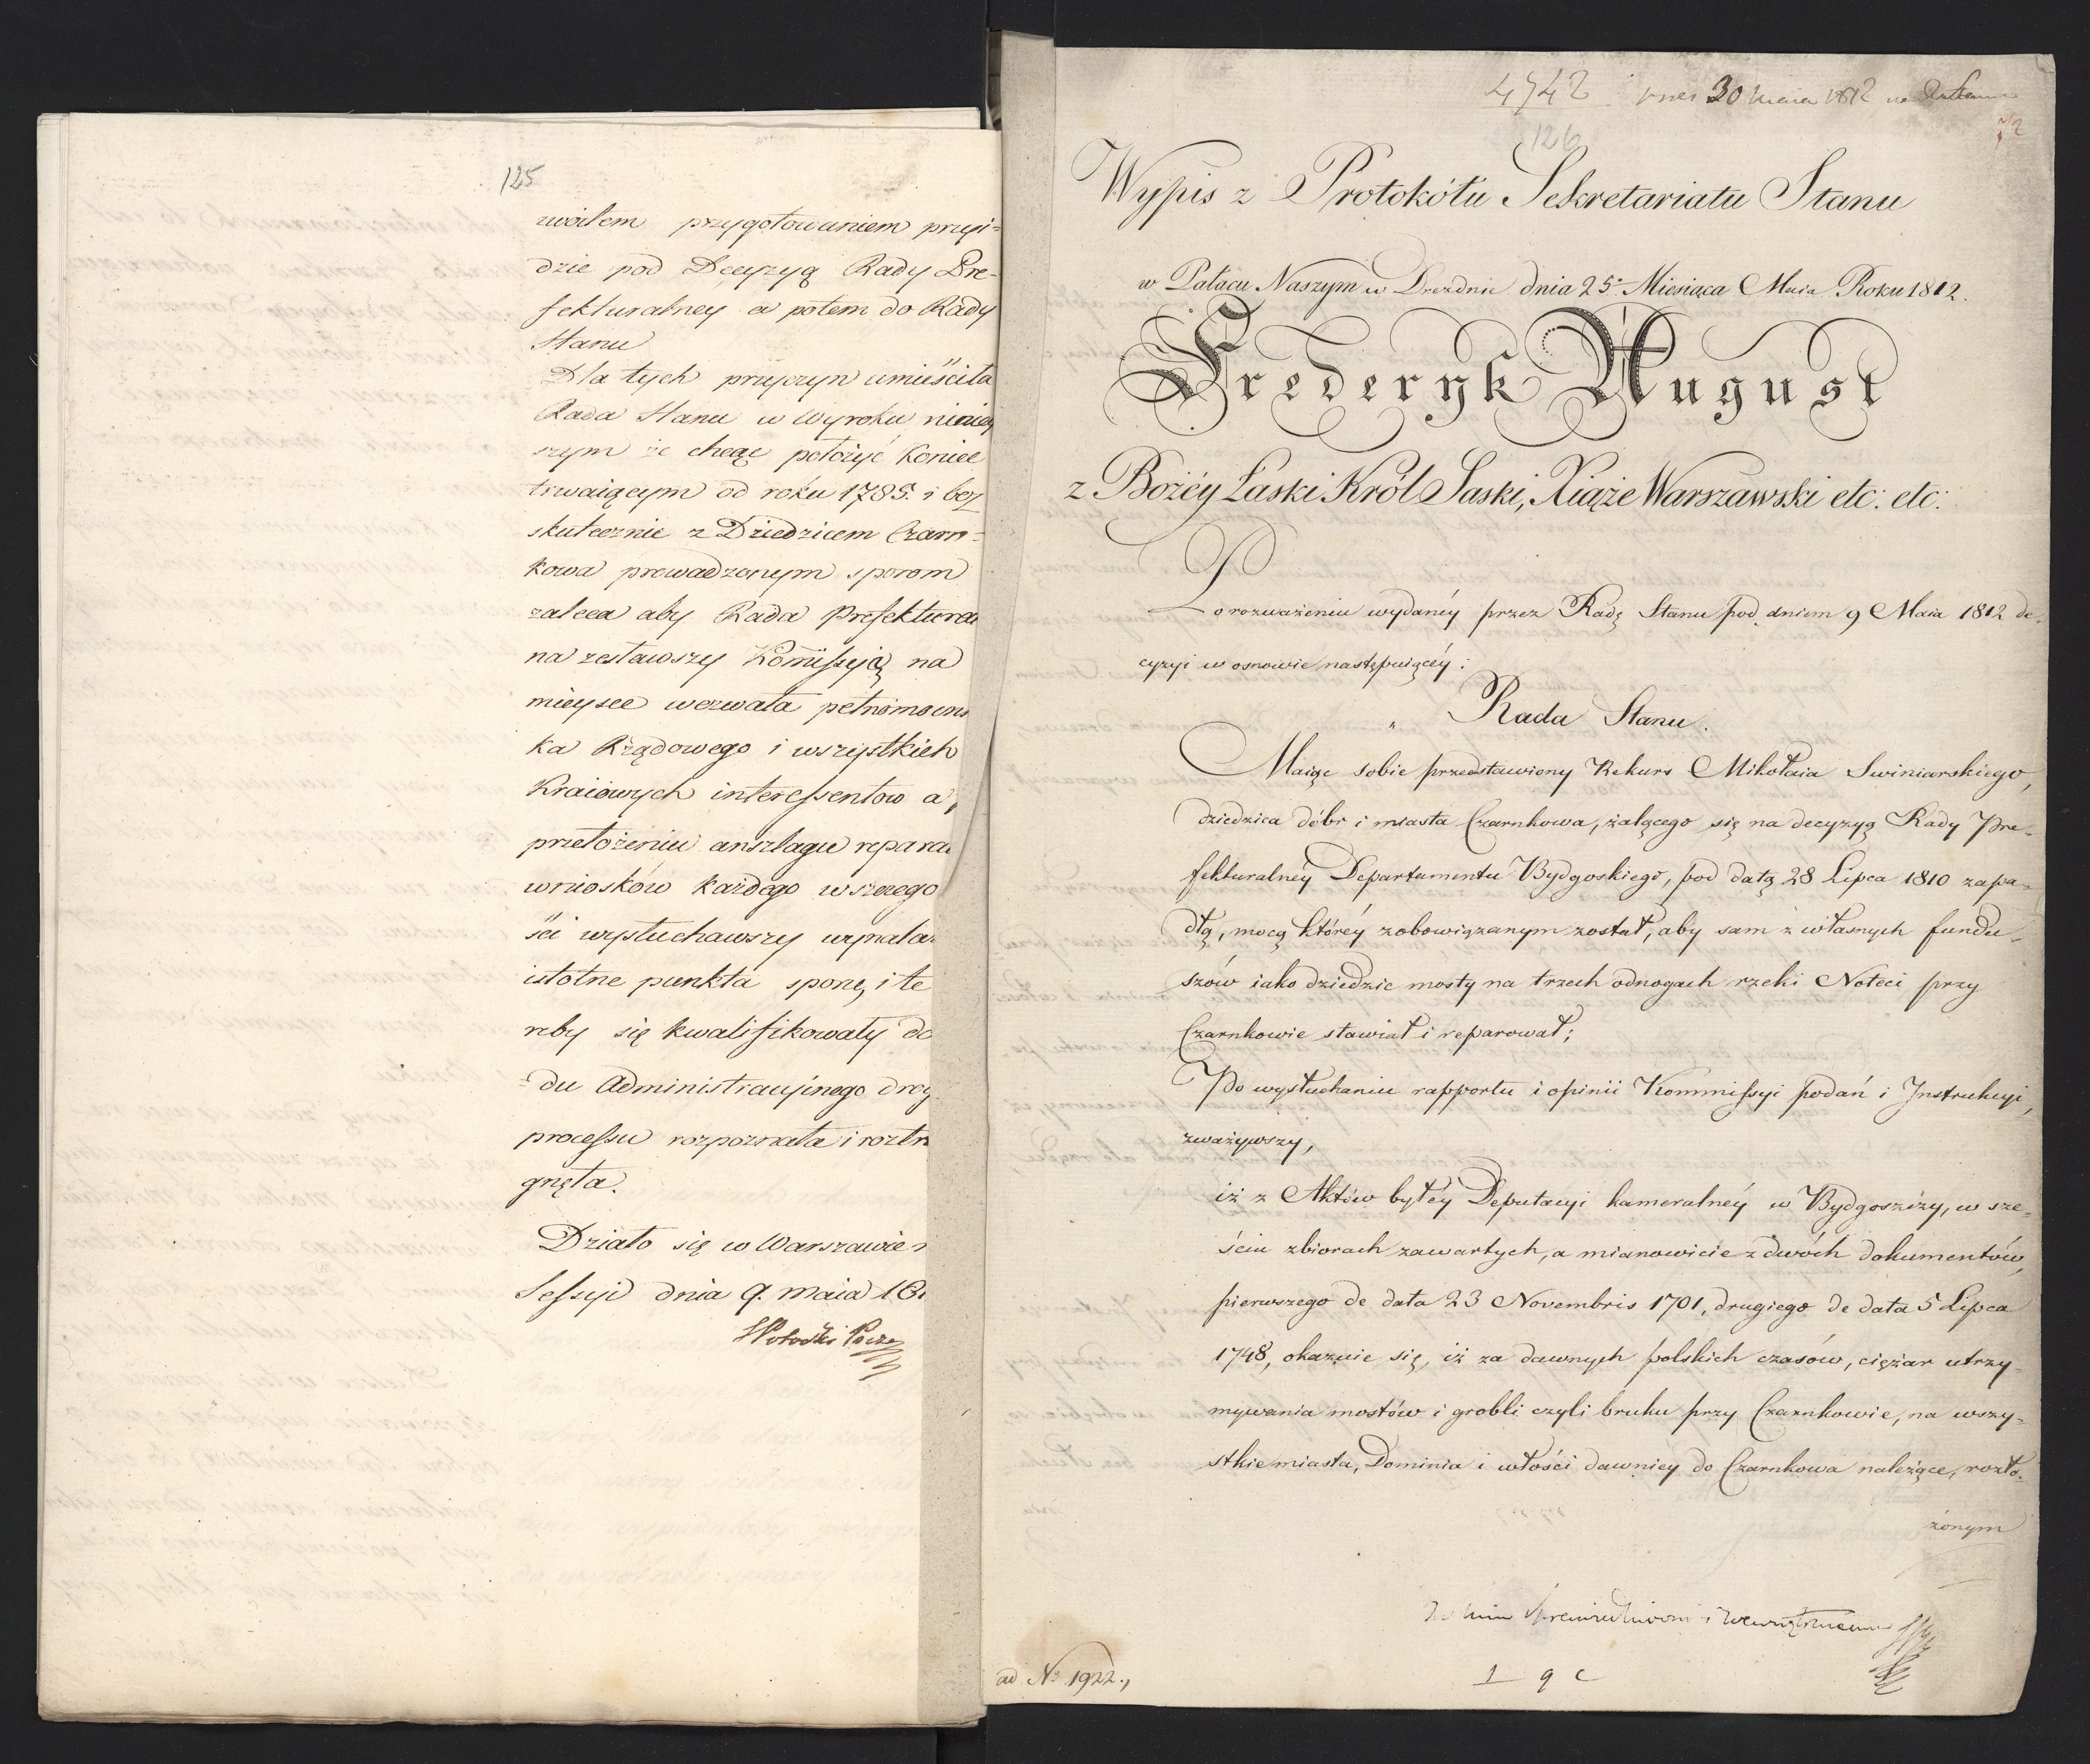 125
zwoitem przygotowaniem przyi=
dzie pod Decyzyą Rady Pre-
fekturalney a potem do Rady
Stanu
Dla tych przyczyn umieściła
Rada Stanu w Wyroku niniey
szym że chcąc położyć koniec
trwaiącym od roku 1785. i bez
skutecznie z Dziedzicem Czarn=
kowa prowadzonym sporom
zaleca aby Rada Prefektural
na zesławszy Kommissyią na
mieysce wezwała pełnomocni
ka Rządowego i wszystkich
Kraiowych interessentow a
przełożeniu anszlagu repara
wniosków każdego wszczego
ści wysłuchawszy wynala
istotne punkta sporu, i te
reby się kwalifikowały do
du Administracyinego drog
processu rozpoznała i roztrz
gnęła.
Działo się w Warszawie n
Sessyi dnia 9. maia 181
4742 30 maia 1812
126
Wypis z Protokółu Sekretariatu Stanu
w Pałacu Naszym w Dreźdnie dnia 25. Miesiąca Maia Roku 1812.
Frederyk August
z Bożéy Łaski Król Saski, Xiąże Warszawski etc: etc:
Po rozważeniu wydanéy przez Radę Stanu pod dniem 9 Maia 1812 de-
cyzyi w osnowie następuiącéy:
„ Rada Stanu.
Maiąc sobie przedstawiony Rekurs Mikołaia Swiniarskiego,
dziedzica dóbr i miasta Czarnkowa, żalącego się na decyzyą Rady Pre-
fekturalnéy Departamentu Bydgoskiego, pod datą 28 Lipca 1810 zapa-
dłą, mocą któréy zobowiązanym został, aby sam z własnych fundu-
szów iako dziedzic mosty na trzech odnogach rzeki Noteci przy
Czarnkowie stawiał i reparował;
Po wysłuchaniu rapportu i opinii Kommissyi podań i Instrukcyi,
zważywszy,
iż z Aktów byłéy Deputacyi kameralnéy w Bydgoszczy, w sze-
ściu zbiorach zawartych, a mianowicie z dwóch dokumentów,
pierwszego de data 23 Novembris 1701, drugiego de data 5 Lipca
1748, okazuie się, iż za dawnych polskich czasów, ciężar utrzy-
mywania mostów i grobli czyli bruku przy Czarnkowie, na wszy-
stkie miasta, Dominia i włości dawniey do Czarnkowa należące, rozło-
żonym
ad No 1922.,
1 9 c